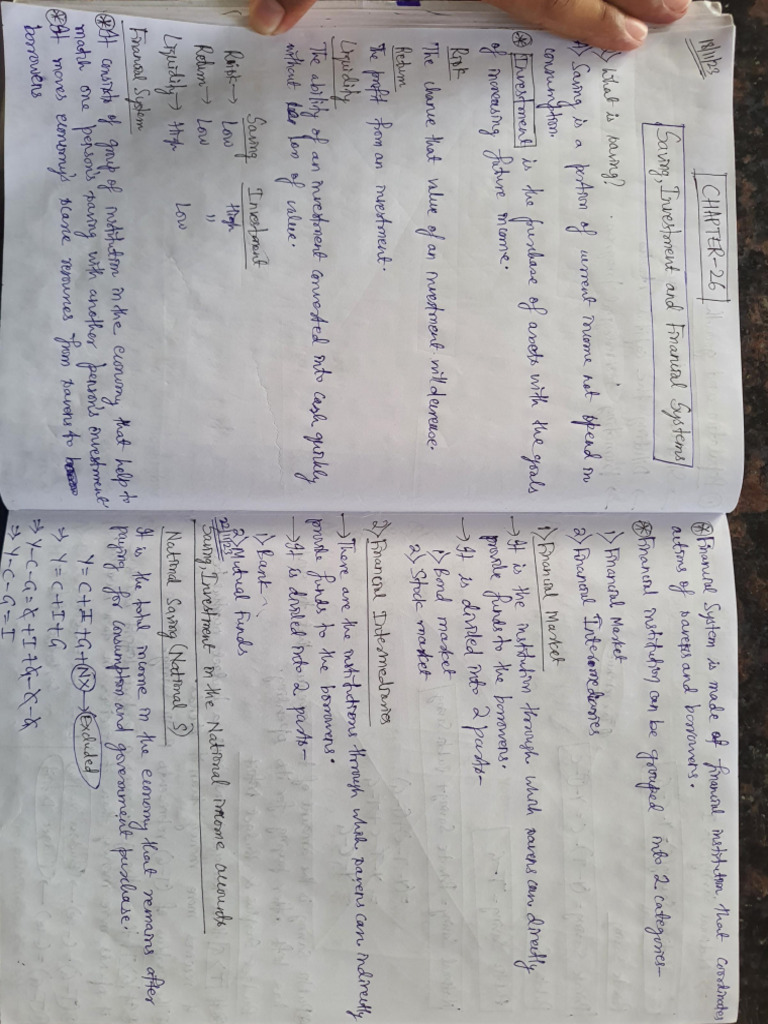 18/11/23
CHAPTER-26
Saving, Investment and Financial Systems
What is saving?
A) Saving is a portion of current income not spend in
consumption.
Investment is the purchase of assets with the goals
of increasing future income.
Risk
The chance that value of an investment will decrease.
Return
The profit from an investment.
Liquidity
The ability of an investment converted into cash quickly
without loss of value.
Saving Investment
Risk → Low High
Return → Low "
Liquidity → High Low
Financial System
It consists of group of institution in the economy that help to
match one person's saving with another person's investment
It moves economy's scarce resources from savers to
borrowers
Financial System is made of financial institution that coordinates
actions of savers and borrowers.
Financial institution can be grouped into 2 categories-
1) Financial Market
2) Financial Intermediaries
1) Financial Market
→ It is the institution through which savers can directly
provide funds to the borrowers.
→ It is divided into 2 parts-
1) Bond market
2) Stock market
2) Financial Intermediaries
→ There are the institutions through which savers can indirectly
provide funds to the borrowers.
→ It is divided into 2 parts-
1) Bank
2) Mutual Funds
Saving, Investment in the National income accounts
National Saving (National S)
It is the total income in the economy that remains after
paying for consumption and government purchase.
Y = C + I + G + NX → Excluded
⇒ Y = C + I + G
⇒ Y - C - G = C + I + G - C - G
⇒ Y - C - G = I